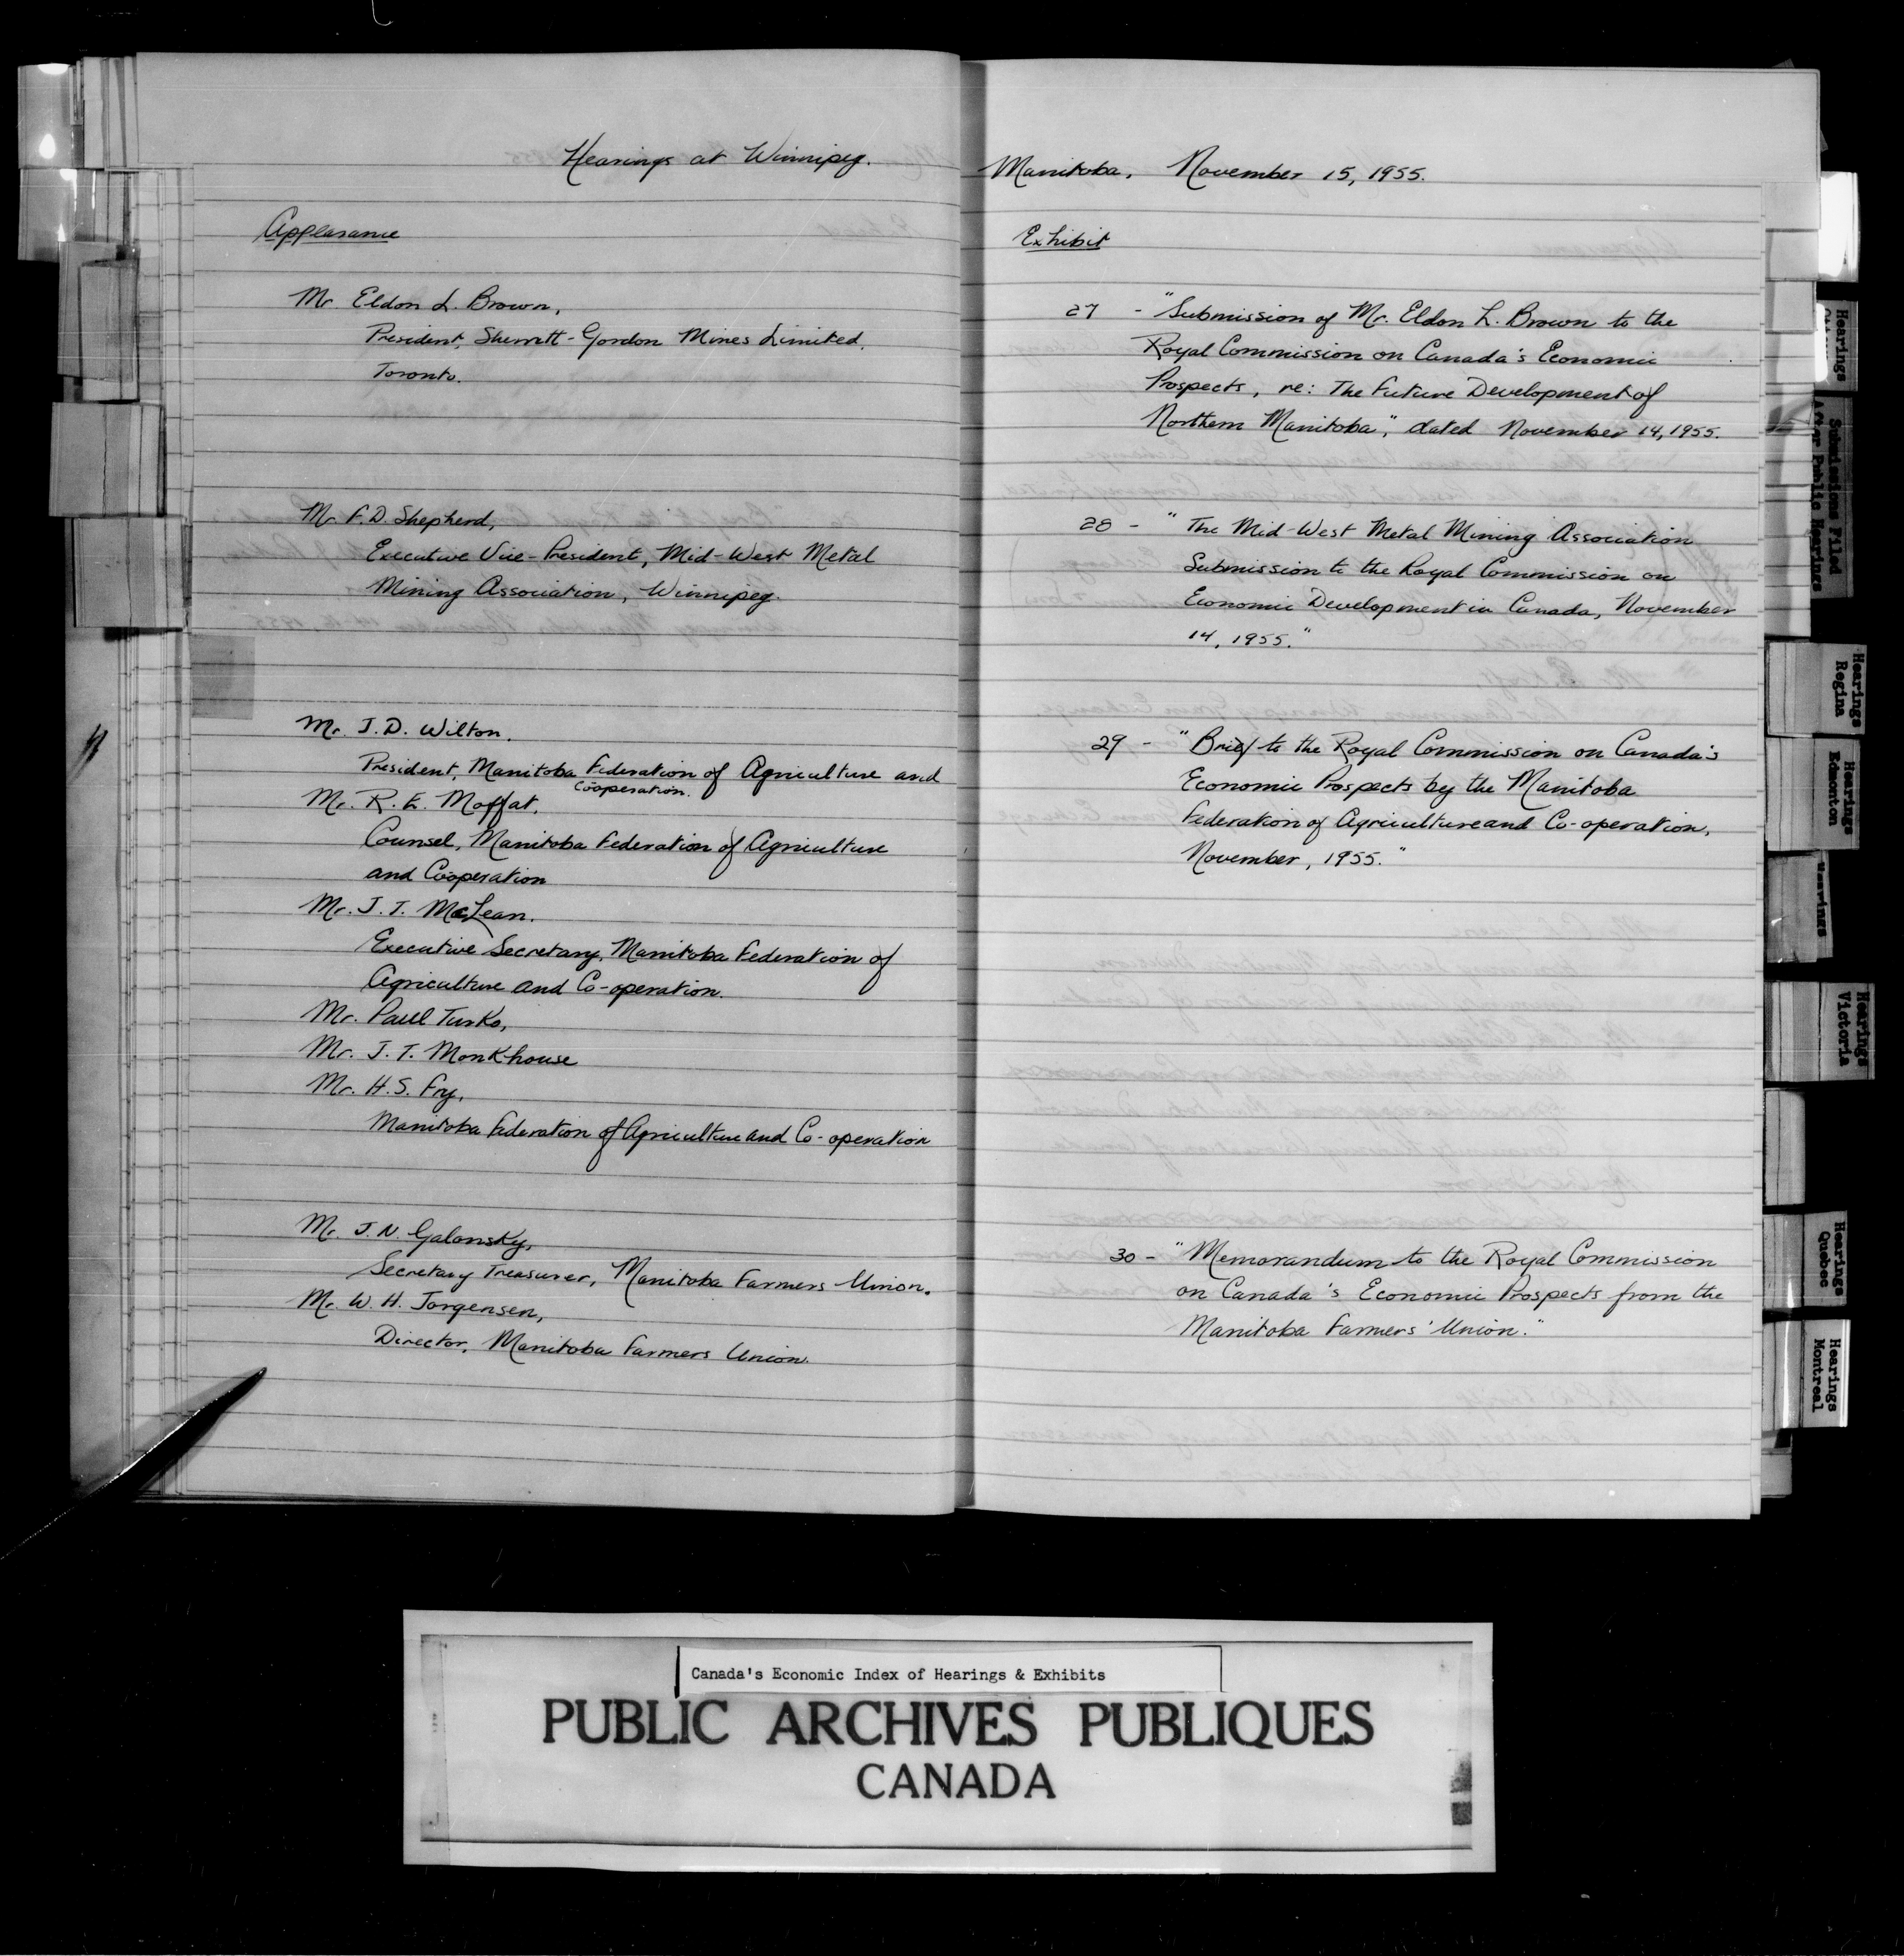 Hearings at Winnipeg.
Appearance
Mr. Eldon L. Brown,
President, Sherritt-Gordon Mines Limited,
Toronto.
Mr. F.D. Shepherd,
Executive Vice-President, Mid-West Metal
Mining Association, Winnipeg.
Mr. J.D. Wilton,
President, Manitoba Federation of Agriculture and
Cooperation.
Mr. R. E. Moffat,
Counsel, Manitoba Federation of Agriculture
and Cooperation
Mr. J. T. McLean,
Executive Secretary, Manitoba Federation of
Agriculture and Co-operation.
Mr. Paul Turko,
Mr. J. T. Monkhouse
Mr. H.S. Fry,
Manitoba Federation of Agriculture and Co-operation
Mr. J. N. Galonsky,
Secretary Treasurer, Manitoba Farmers Union.
Mr. W. H. Jorgensen,
Director, Manitoba Farmers Union.
Manitoba, November 15, 1955.
Exhibit
27 - "Submission of Mr. Eldon L. Brown to the
Royal Commission on Canada's Economic
Prospects, re: The Future Development of
Northern Manitoba", dated November 14, 1955.
28 - "The Mid-West Metal Mining Association
Submission to the Royal Commission on
Economic Development in Canada, November
14, 1955."
29 - "Brief to the Royal Commission on Canada's
Economic Prospects by the Manitoba
Federation of Agriculture and Co-operation,
November, 1955."
30 - "Memorandum to the Royal Commission
on Canada's Economic Prospects from the
Manitoba Farmers' Union."
Hearings
Submissions Filed
After Public Hearings
Hearings
Regina
Hearings
Edmonton
Hearings
Hearings
Victoria
Hearings
Quebec
Hearings
Montreal
Canada's Economic Index of Hearings & Exhibits
PUBLIC ARCHIVES PUBLIQUES
CANADA